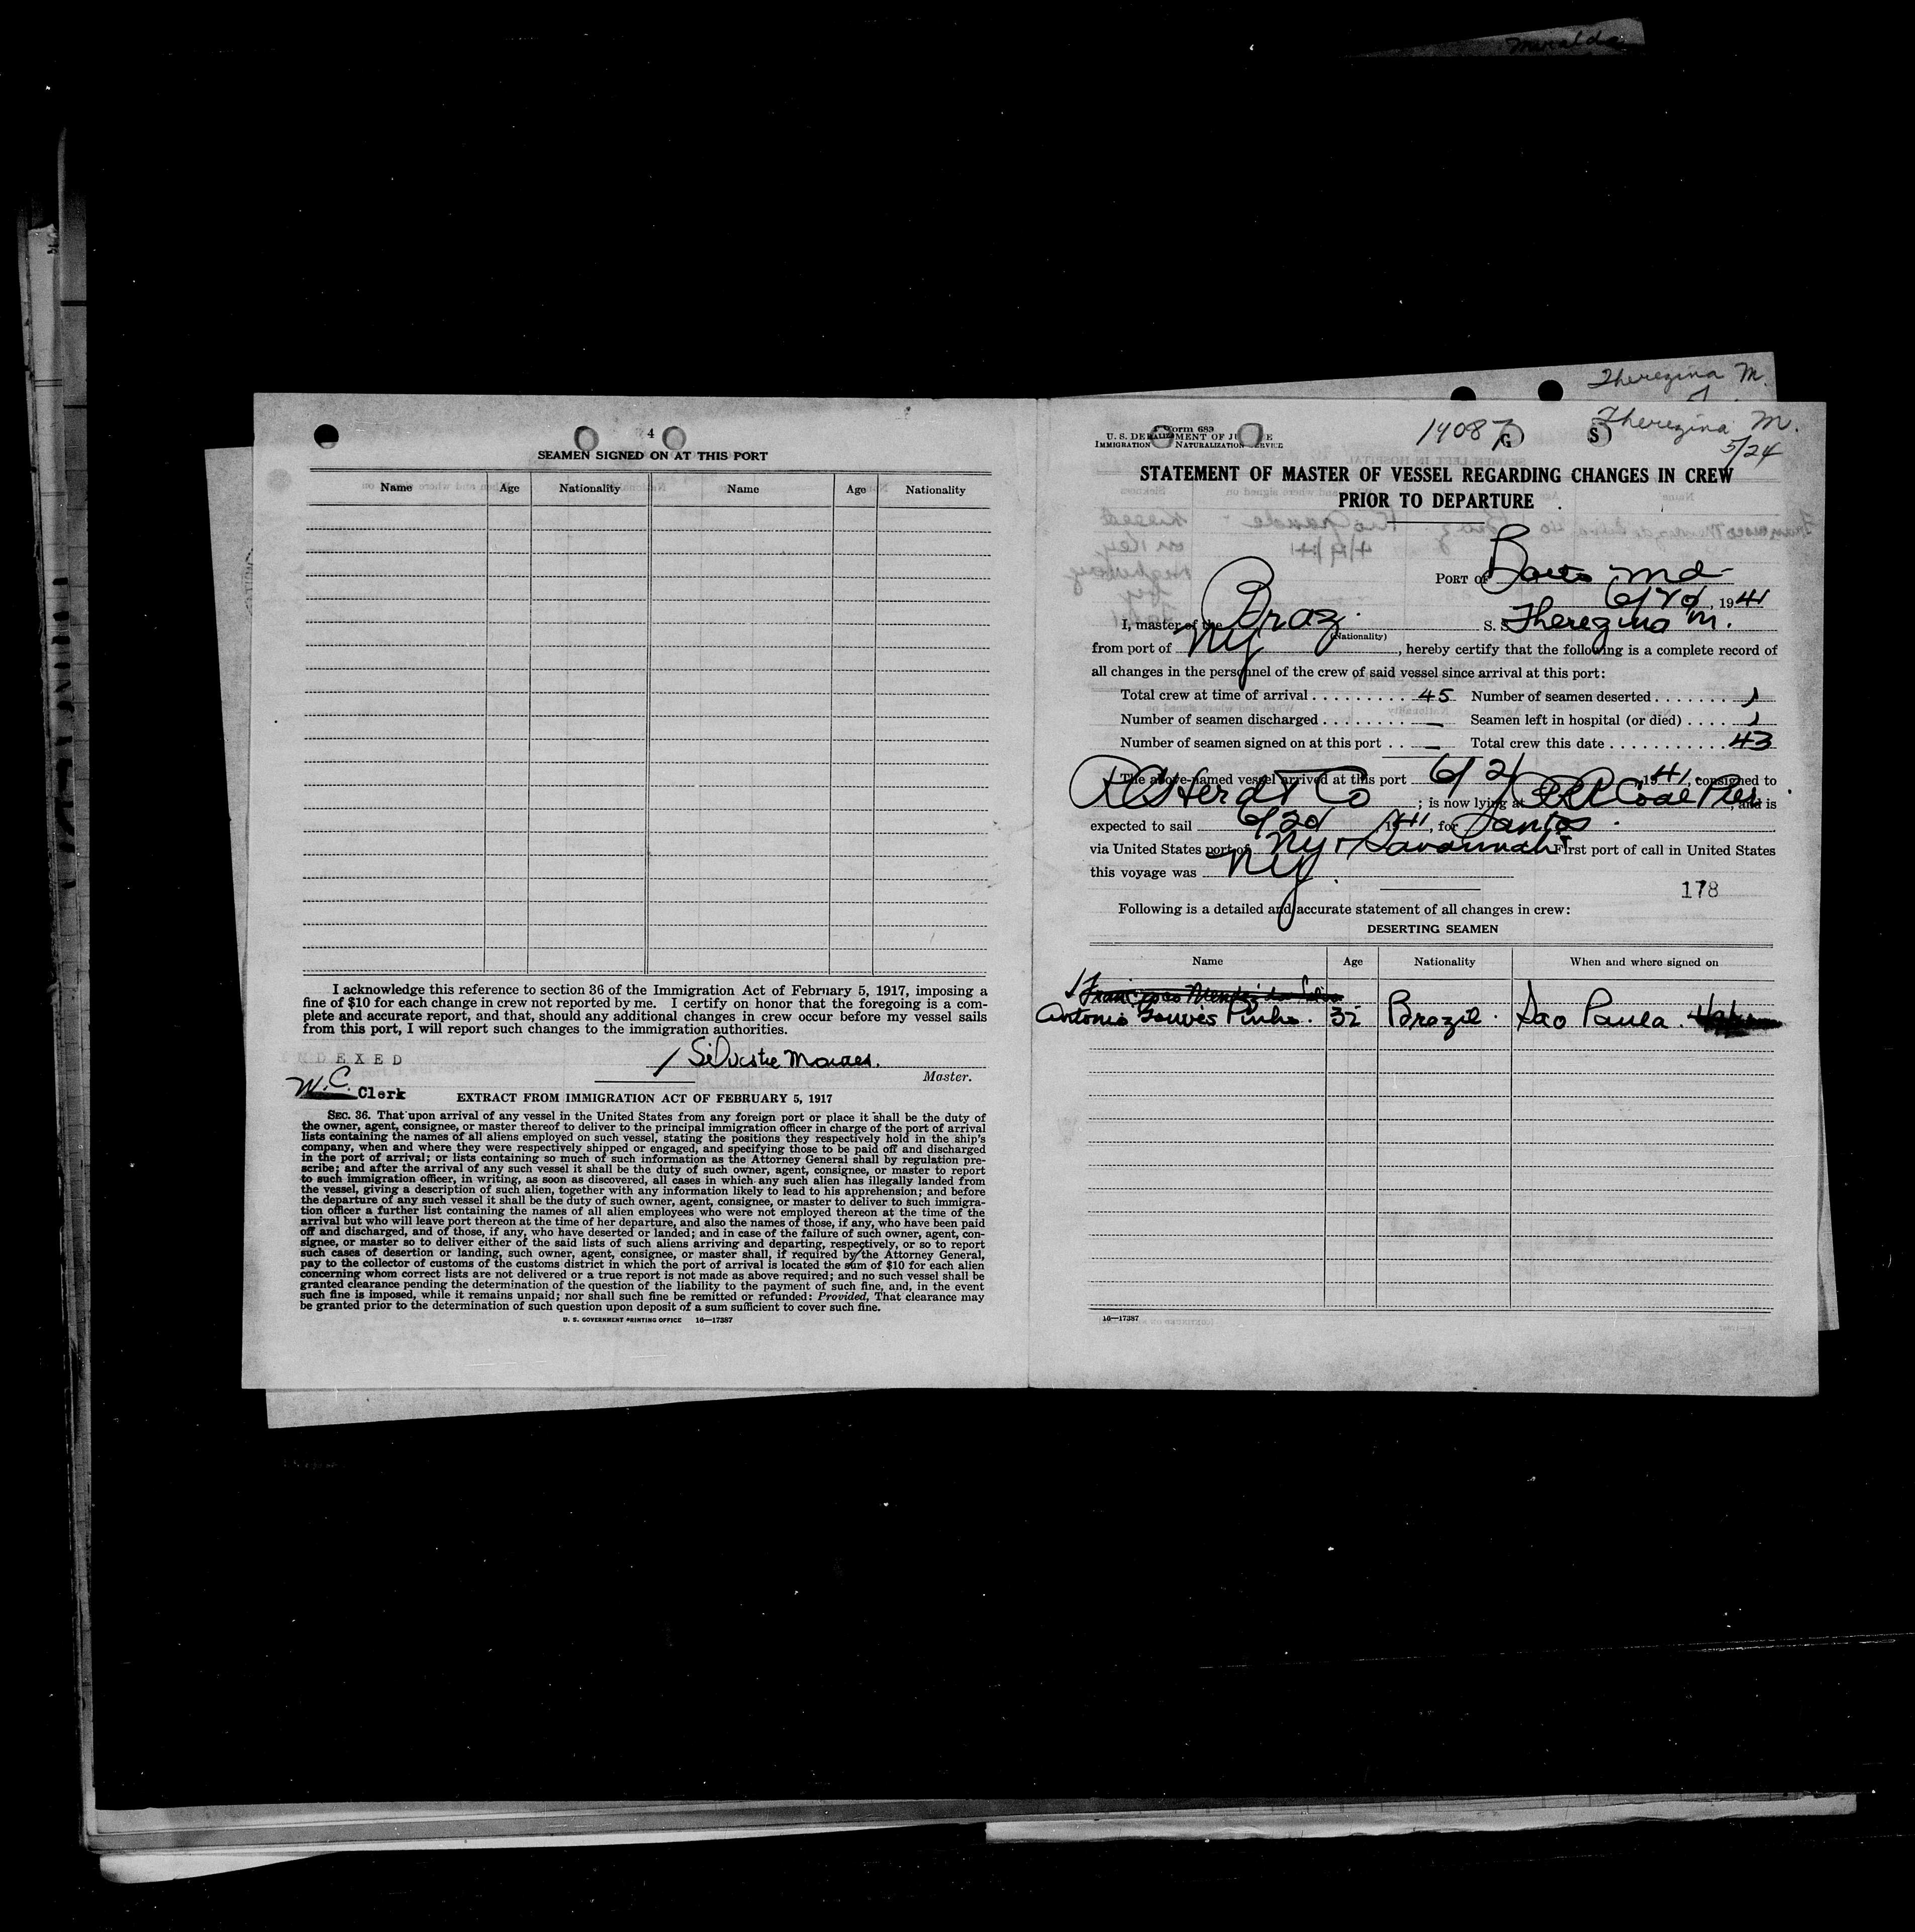 Therezina M.
4
SEAMEN SIGNED ON AT THIS PORT
Name Age Nationality Name Age Nationality
I acknowledge this reference to section 36 of the Immigration Act of February 5, 1917, imposing a
fine of $10 for each change in crew not reported by me. I certify on honor that the foregoing is a com-
plete and accurate report, and that, should any additional changes in crew occur before my vessel sails
from this port, I will report such changes to the immigration authorities.
INDEXED
Silvestre Moraes.
Master.
W.C. Clerk
EXTRACT FROM IMMIGRATION ACT OF FEBRUARY 5, 1917
SEC. 36. That upon arrival of any vessel in the United States from any foreign port or place it shall be the duty of
the owner, agent, consignee, or master thereof to deliver to the principal immigration officer in charge of the port of arrival
lists containing the names of all aliens employed on such vessel, stating the positions they respectively hold in the ship's
company, when and where they were respectively shipped or engaged, and specifying those to be paid off and discharged
in the port of arrival; or lists containing so much of such information as the Attorney General shall by regulation pre-
scribe; and after the arrival of any such vessel it shall be the duty of such owner, agent, consignee, or master to report
to such immigration officer, in writing, as soon as discovered, all cases in which any such alien has illegally landed from
the vessel, giving a description of such alien, together with any information likely to lead to his apprehension; and before
the departure of any such vessel it shall be the duty of such owner, agent, consignee, or master to deliver to such immigra-
tion officer a further list containing the names of all alien employees who were not employed thereon at the time of the
arrival but who will leave port thereon at the time of her departure, and also the names of those, if any, who have been paid
off and discharged, and of those, if any, who have deserted or landed; and in case of the failure of such owner, agent, con-
signee, or master so to deliver either of the said lists of such aliens arriving and departing, respectively, or so to report
such cases of desertion or landing, such owner, agent, consignee, or master shall, if required by the Attorney General,
pay to the collector of customs of the customs district in which the port of arrival is located the sum of $10 for each alien
concerning whom correct lists are not delivered or a true report is not made as above required; and no such vessel shall be
granted clearance pending the determination of the question of the liability to the payment of such fine, and, in the event
such fine is imposed, while it remains unpaid; nor shall such fine be remitted or refunded: Provided, That clearance may
be granted prior to the determination of such question upon deposit of a sum sufficient to cover such fine.
U. S. GOVERNMENT PRINTING OFFICE 16—17387
Form 689
U. S. DEPARTMENT OF JUSTICE
IMMIGRATION NATURALIZATION SERVICE
14087 G S
Therezina M.
5/24
STATEMENT OF MASTER OF VESSEL REGARDING CHANGES IN CREW
PRIOR TO DEPARTURE
PORT OF Balto Md
6/20, 1941
I, master of the Braz. S. S. Therezina M.
(Nationality)
from port of NY, hereby certify that the following is a complete record of
all changes in the personnel of the crew of said vessel since arrival at this port:
Total crew at time of arrival 45 Number of seamen deserted 1
Number of seamen discharged — Seamen left in hospital (or died) 1
Number of seamen signed on at this port — Total crew this date 43
The above-named vessel arrived at this port 6/2/ 1941, consigned to
R C Herd & Co; is now lying at Coal Pier, and is
expected to sail 6/20/ 1941, for Santos.
via United States port of NY & Savannah First port of call in United States
this voyage was NY.
178
Following is a detailed and accurate statement of all changes in crew:
DESERTING SEAMEN
Name Age Nationality When and where signed on
Francisco Mendez da Silva
Antonio Gouves Pinho. 32 Brazil. Sao Paula.
16—17387